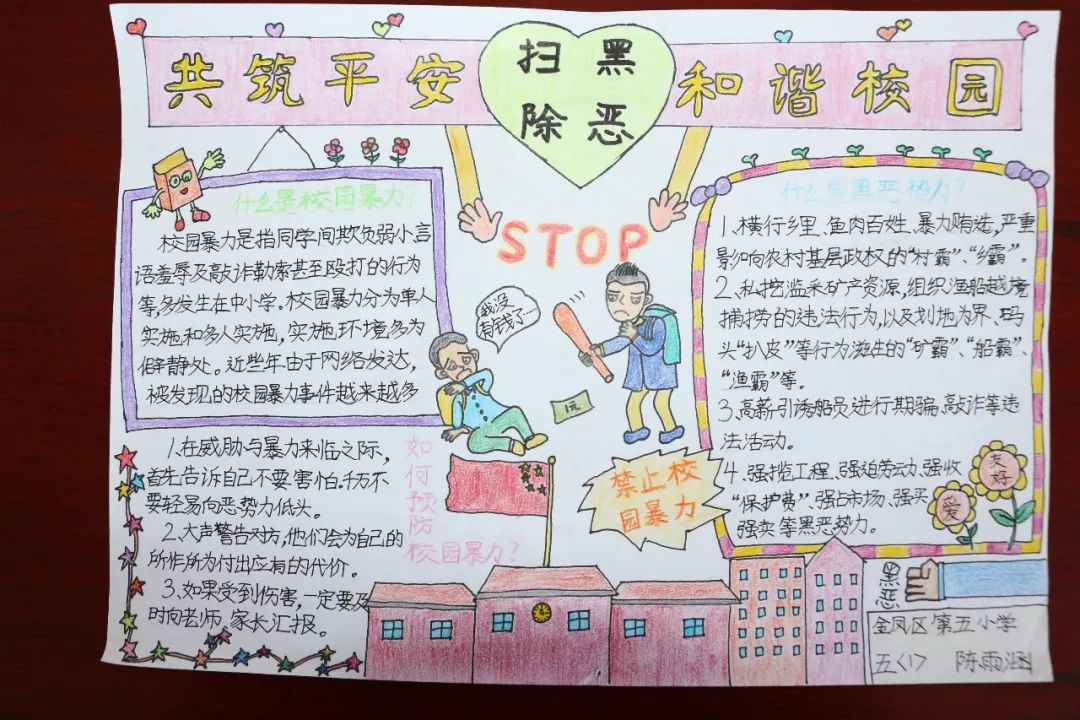 共筑平安
扫黑
除恶
和谐校园
什么是校园暴力?
校园暴力是指同学间欺负弱小言
语羞辱及敲诈勒索甚至殴打的行为
等,多发生在中小学。校园暴力分为单人
实施和多人实施,实施环境多为
僻静处。近些年由于网络发达,
被发现的校园暴力事件越来越多
STOP
我没
有钱了……
1元
什么是黑恶势力?
1、横行乡里、鱼肉百姓、暴力贿选,严重
影响农村基层政权的“村霸”、“乡霸”。
2、私挖滥采矿产资源,组织渔船越境
捕捞的违法行为,以及划地为界、码
头“扒皮”等行为滋生的“矿霸”、“船霸”、
“渔霸”等。
3、高薪引诱船员进行欺骗、敲诈等违
法活动。
4、强揽工程、强迫劳动、强收
“保护费”、强占市场、强买
强卖等黑恶势力。
友好
爱
1、在威胁与暴力来临之际,
首先告诉自己不要害怕。千万不
要轻易向恶势力低头。
2、大声警告对方,他们会为自己的
所作所为付出应有的代价。
3、如果受到伤害,一定要及
时向老师、家长汇报。
如何预防
校园暴力?
禁止校
园暴力
黑恶
金凤区第五小学
五<1> 陈雨涵